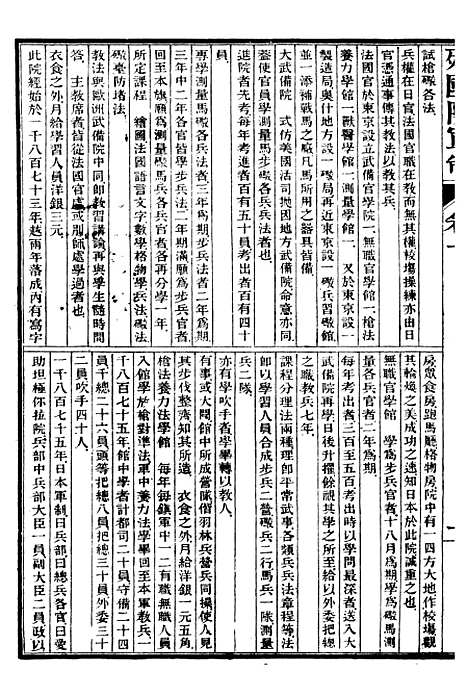 試槍礮各法
兵權在日官法國官職在教而無其權校場操演亦出日
官憑通事傳其教法以教兵
法國官於東京設立武備官學院一無職官學館一槍法
養力學館一獸醫學館一測量學館一 又於東京設一
製造局與什地方設一礮局再近東京設一礮兵習礮館
並一添補戰馬之廠凡馬所用之器具皆備
大武備院 式仿美國沽司打因地方武備院命意亦同
蓋使官員學測量馬步礮各兵兵法者也
進院者无考每年考進者百有五十員考出者百有四十
專學測量馬礮各官兵三年步兵法者二年為期
三年中二年各官皆學步兵法二年期滿願為步兵官者
回至本旗願為測量礮馬兵各兵官者各再分學一年
所定課程 繪圖法國語言文字數學格物學兵法礮法
礮臺防堵法
教法與歐洲武備院中同即教習講論再與學生隨時問
答 主教席者皆從法國官處或別師處學過者也
衣食之外月給學習人員洋銀三元
此院經始於一千八百七十三年越兩年落成內有寫字
房飲食房跑馬廳格物房院中有一四方大地作校場觀
其輪煥之美成功之速知日本於此院誠重之也
無職官學館 學為步兵官者十八月為期學為礮馬測
量各兵官者二年為期
每年考出者三百至五百人考出時以學問最深者送入大
武備院再學日後升擢餘視其學之所至分別等差給
之職教兵七年
課程分理法兩種理即平常武事各類兵兵法章程等法
即以學習人員合成步兵二營礮兵二行馬兵一隊測量
兵二隊
亦有學吹手者學畢轉以教人
有事或大閱館中所成營隊偕羽林兵營兵同操使人見
其步伐整齊知其所造 衣食之外月給洋銀一元五角
槍法養力法學館 每年每鎮軍中一二有職無職人員
入館學放槍對準法軍中養力法學畢回至本軍教兵一
千八百七十五年館中學者計都司二十員守備二十四
員千總二十六員頭等把總八員把總三十員外委三十
二員吹手四十人
一千八百七十五年日本軍制曰兵部曰總兵各官曰兵
助坦極你拉院兵部中兵部大臣一員副大臣二員政以